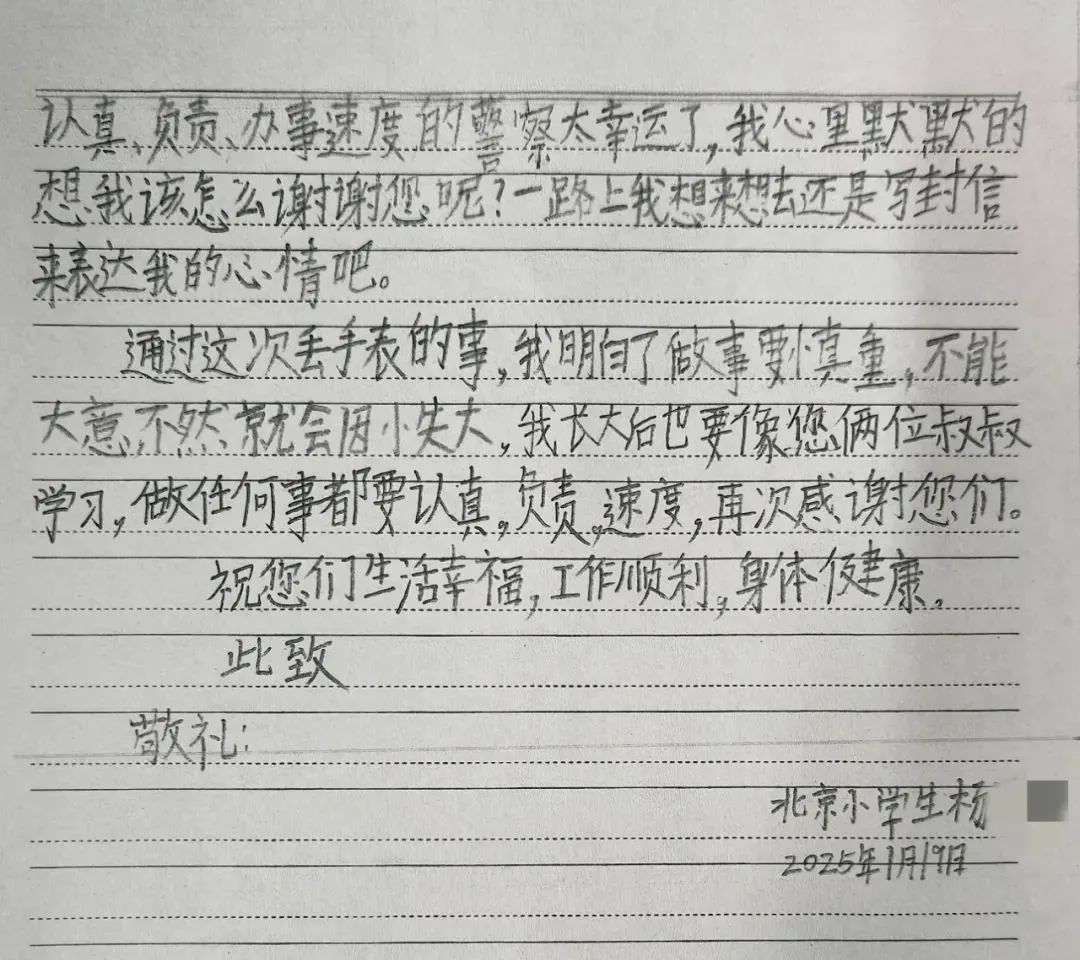 认真、负责、办事速度的警察太幸运了,我心里默默的
想我该怎么谢谢您呢?一路上我想来想去还是写封信
来表达我的心情吧。
通过这次丢手表的事,我明白了做事要慎重,不能
大意,不然就会因小失大,我长大后也要像您俩位叔叔
学习,做任何事都要认真,负责,速度,再次感谢您们。
祝您们生活幸福,工作顺利,身体健康。
此致
敬礼:
北京小学生杨
2025年1月19日